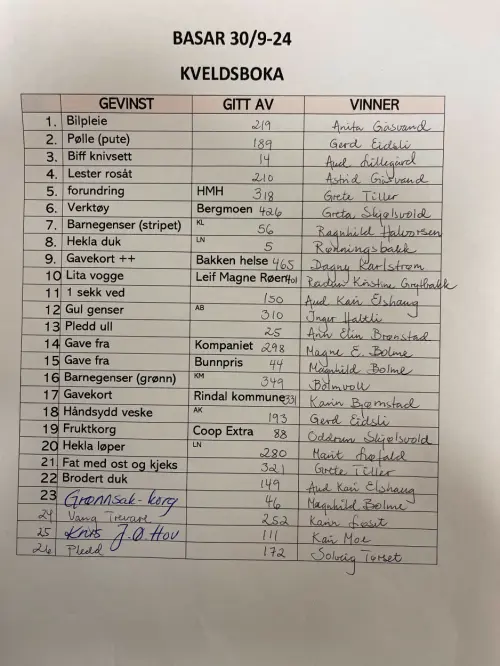 BASAR 30/9-24
KVELDSBOKA
GEVINST GITT AV VINNER
1. Bilpleie 219 Anita Gåsvand
2. Pølle (pute) 189 Gerd Eidsli
3. Biff knivsett 14 Aud Lillegård
4. Lester rosåt 210 Astrid Gåsvand
5. forundring HMH 318 Grete Tiller
6. Verktøy Bergmoen 426 Greta Skjølsvold
7. Barnegenser (stripet) KL 56 Ragnhild Halvorsen
8. Hekla duk LN 5 Rønningsbakk
9. Gavekort ++ Bakken helse 465 Dagny Karlstrøm
10 Lita vogge Leif Magne Røen 401 Kristine Grytbakk
11 1 sekk ved 150 Aud Kari Elshaug
12 Gul genser AB 310 Inger Haltli
13 Pledd ull 25 Ann Elin Brønstad
14 Gave fra Kompaniet 298 Magne E. Bolme
15 Gave fra Bunnpris 44 Magnhild Bolme
16 Barnegenser (grønn) KM 349 Bolmvoll
17 Gavekort Rindal kommune 331 Karin Bjørnstad
18 Håndsydd veske AK 193 Gerd Eidsli
19 Fruktkorg Coop Extra 88 Oddrun Skjølsvold
20 Hekla løper LN 280 Marit Løfald
21 Fat med ost og kjeks 321 Grete Tiller
22 Brodert duk 149 Aud Kari Elshaug
23 Grønnsak-korg 46 Magnhild Bolme
24 Vang Trevare 252 Karin Løset
25 Knivs J.Ø Hov 111 Kari Moe
26 Pledd 172 Solveig Torset